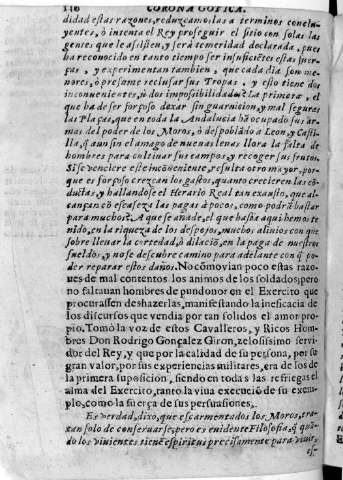 146 CORONA GOTICA.
didad estas razones, reduzcamoslas a terminos conclu-
yentes, ò intenta el Rey proseguir el sitio con solas las
gentes que le assisten, y serà temeridad declarada, pues
ha reconocido en tanto tiempo ser insuficiẽtes estas fuer-
ças, y experimentan tambien, que cada dia son me-
nores, ò presume reclutar sus Tropas, y esto tiene dos
inconuenientes, ù dos impossibilidades: la primera, el
que ha de ser forçoso dexar sin guarnicion, y mal seguras
las Plaças, que en toda la Andalucia hã ocupado sus ar-
mas del poder de los Moros, ò despoblãdo a Leon, y Casti-
lla, q̃ aun sin el amago de nueuas leuas llora la falta de
hombres para cultiuar sus campos, y recoger sus frutos.
Si se venciere este inconueniente, resulta otro mayor, por-
que es forçoso crezcan los gastos, quanto crecieren las cõ-
ductas, y hallandose el Herario Real tan exausto, que al-
cançan cõ escaseza las pagas à pocos, como podrà bastar
para muchos? A que se añade, el que hasta aqui hemos te-
nido, en la riqueza de los despojos, muchos aliuios con que
sobre lleuar la cortedad, ò dilaciõ, en la paga de nuestros
sueldos, y no se descubre camino para adelante con q̃ po-
der reparar estos daños. No cõmovian poco estas razo-
nes de mal contentos los animos de los soldados; pero
no faltauan hombres de pundonor en el Exercito que
procurassen deshazerlas, manifestando la ineficacia de
los discursos que vendia por tan solidos el amor pro-
pio. Tomò la voz de estos Cavalleros, y Ricos Hom-
bres Don Rodrigo Gonçalez Giron, zelosissimo servi-
dor del Rey, y que por la calidad de su persona, por su
gran valor, por sus experiencias militares, era de los de
la primera suposicion, siendo en todas las refriegas el
alma del Exercito, tanto la viua execució de su exem-
plo, como la fuerça de sus persuasiones.
Es verdad, dixo, que escarmentados los Moros, tra-
tan solo de conseruarse, pero es euidente Filosofia, q̃ quã-
do los viuientes tienẽ espiritus precisamente para viuir,
es-